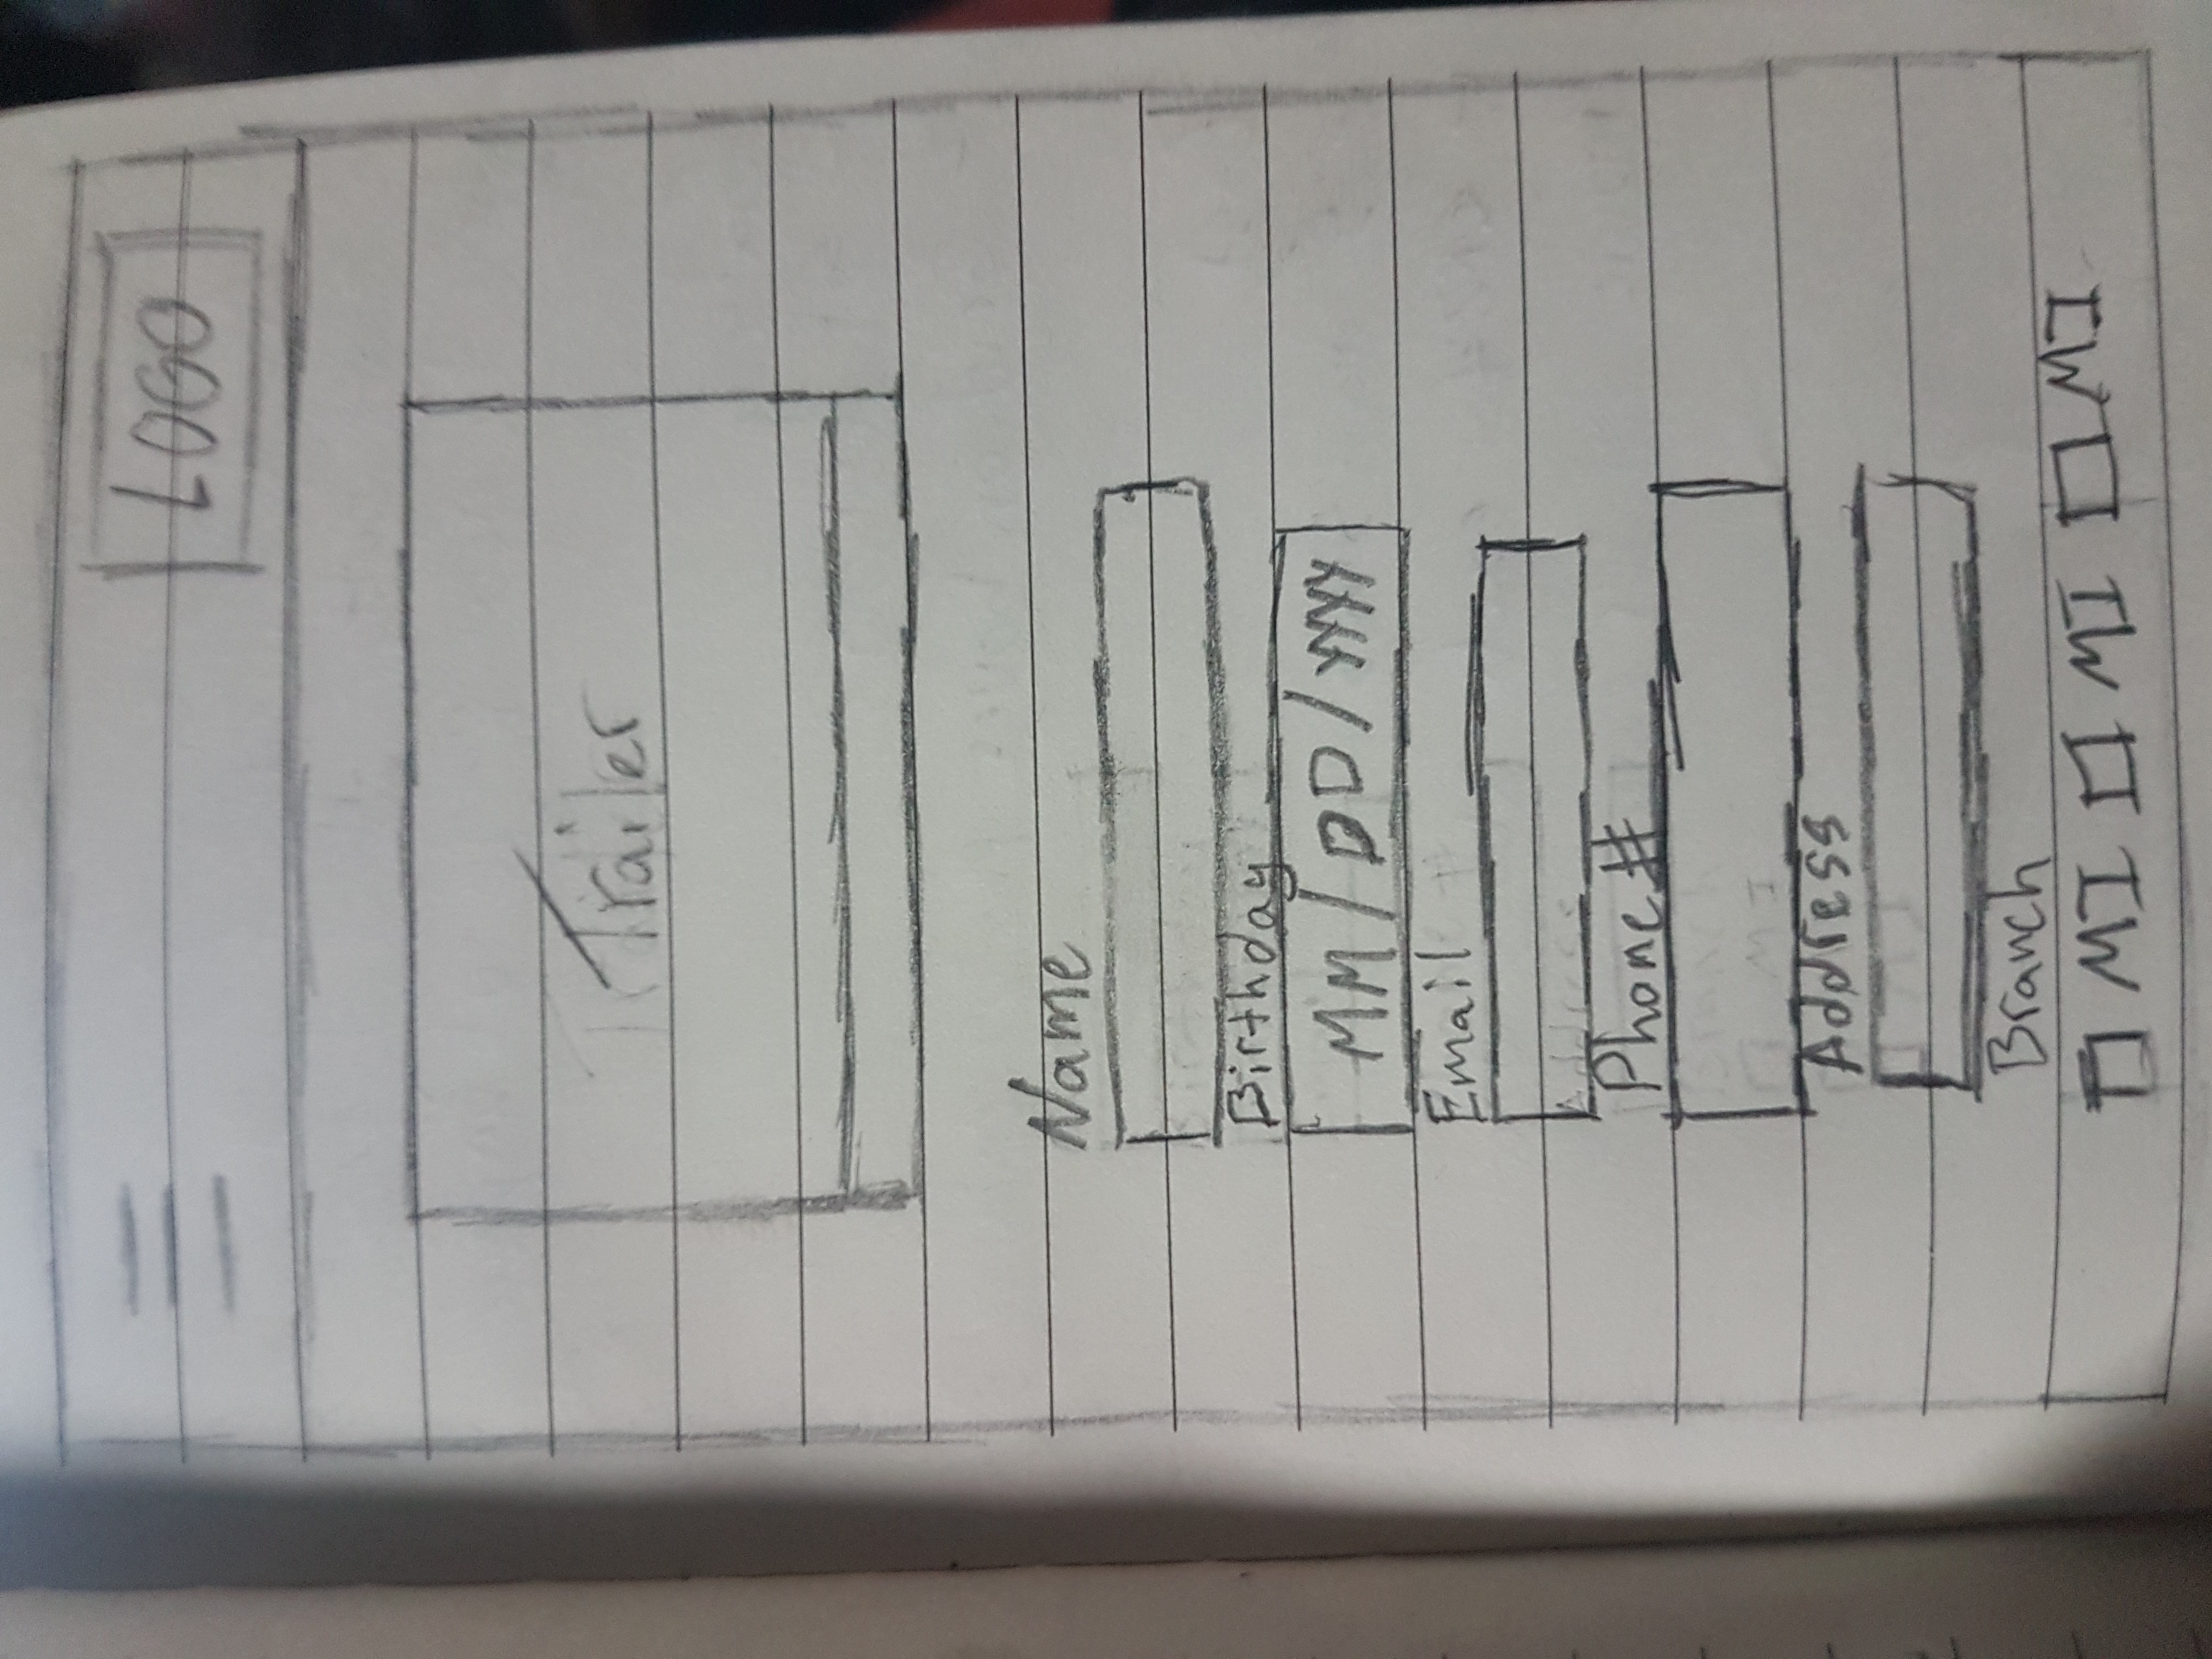 LOGO
Trailer
Name
Birthday
MM/DD/YYYY
Email
Phone#
Address
Branch